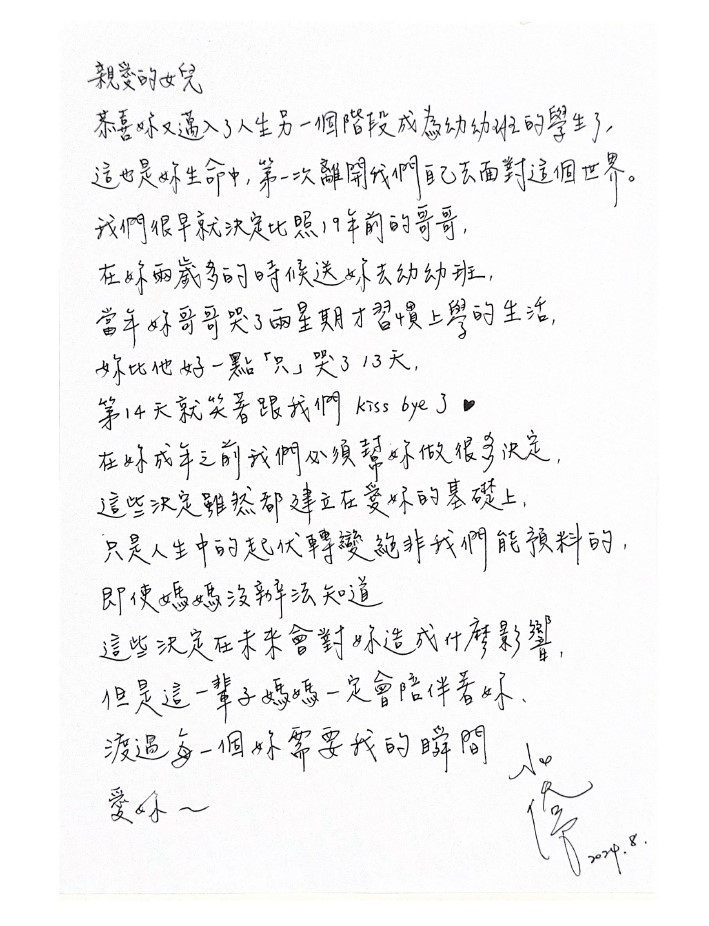 親愛的女兒
恭喜妳又邁入了人生另一個階段成為幼幼班的學生了,
這也是妳生命中,第一次離開我們自己去面對這個世界。
我們很早就決定比照19年前的哥哥,
在妳兩歲多的時候送妳去幼幼班,
當年妳哥哥哭了兩星期才習慣上學的生活,
妳比他好一點「只」哭了13天,
第14天就笑著跟我們 kiss bye 了 ♥
在妳成年之前我們必須幫妳做很多決定,
這些決定雖然都建立在愛妳的基礎上,
只是人生中的起伏轉變絕非我們能預料的,
即使媽媽沒辦法知道
這些決定在未來會對妳造成什麼影響,
但是這一輩子媽媽一定會陪伴著妳、
渡過每一個妳需要我的瞬間
愛妳~
2024.8.